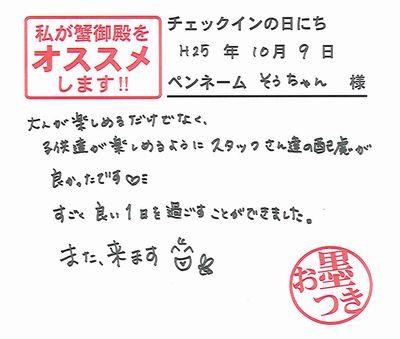 私が蟹御殿を
オススメ
します!!
チェックインの日にち
H25 年 10月 9 日
ペンネーム そうちゃん 様
大人が楽しめるだけでなく、
子供達が楽しめるように スタッフさん達の配慮が
良かったです♡
すごく良い1日を過ごすことができました。
また、来ます
お墨つき